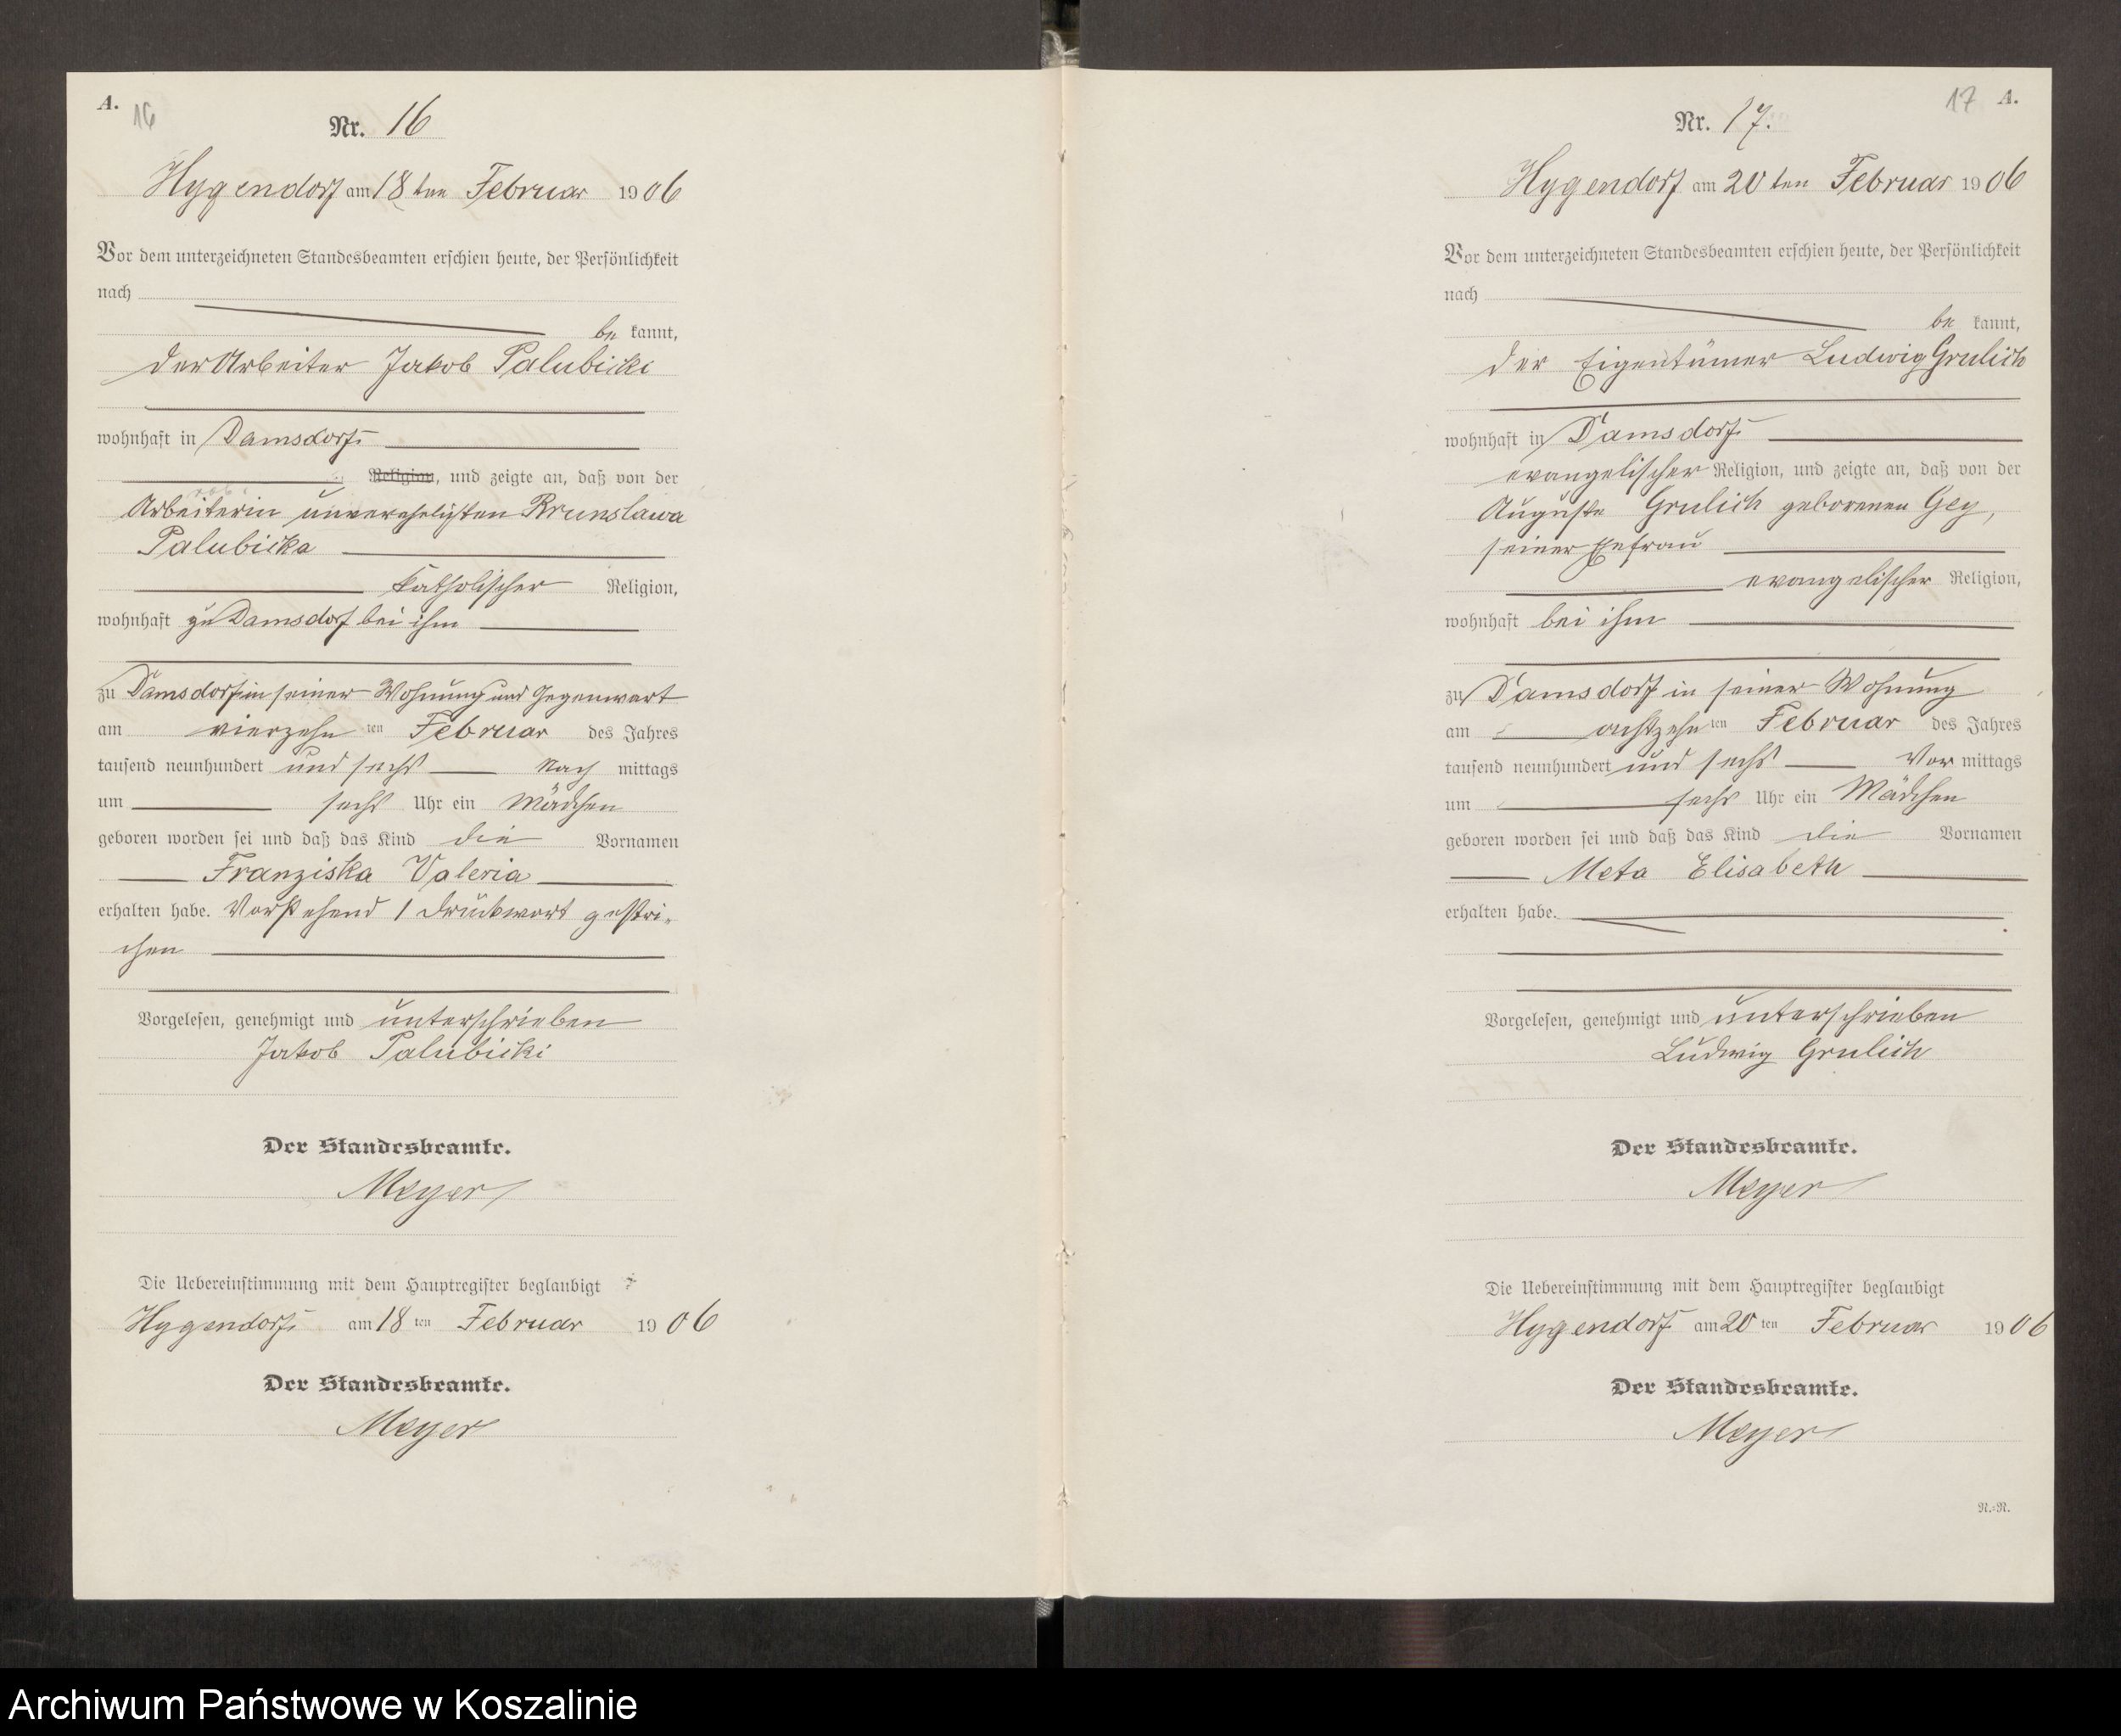 A.
16
Nr. 16
Hygendorf am 18ten Februar 1906
Vor dem unterzeichneten Standesbeamten erschien heute, der Persönlichkeit
nach
be kannt,
der Arbeiter Jakob Palubicki
wohnhaft in Damsdorf
Religion, und zeigte an, daß von der
Arbeiterin unverehelichten Brunslawa
Palubicka
katholischer Religion,
wohnhaft zu Damsdorf bei ihm
zu Damsdorf in seiner Wohnung und Gegenwart
am vierzehn ten Februar des Jahres
tausend neunhundert und sechs Nach mittags
um sechs Uhr ein Mädchen
geboren worden sei und daß das Kind die Vornamen
Franziska Valeria
erhalten habe. Vorstehend 1 Druckwort gestri-
chen
Vorgelesen, genehmigt und unterschrieben
Jakob Palubicki
Der Standesbeamte.
Meyer
Die Uebereinstimmung mit dem Hauptregister beglaubigt
Hygendorf am 18 ten Februar 1906
Der Standesbeamte.
Meyer
17 A.
Nr. 17.
Hygendorf am 20 ten Februar 1906
Vor dem unterzeichneten Standesbeamten erschien heute, der Persönlichkeit
nach
be kannt,
der Eigentümer Ludwig Grulich
wohnhaft in Damsdorf
evangelischer Religion, und zeigte an, daß von der
Auguste Grulich geborenen Gey,
seiner Ehefrau
evangelischer Religion,
wohnhaft bei ihm
zu Damsdorf in seiner Wohnung
am achtzehn ten Februar des Jahres
tausend neunhundert und sechs Vor mittags
um sechs Uhr ein Mädchen
geboren worden sei und daß das Kind die Vornamen
Meta Elisabeth
erhalten habe.
Vorgelesen, genehmigt und unterschrieben
Ludwig Grulich
Der Standesbeamte.
Meyer
Die Uebereinstimmung mit dem Hauptregister beglaubigt
Hygendorf am 20 ten Februar 1906
Der Standesbeamte.
Meyer
N.=N.
Archiwum Państwowe w Koszalinie